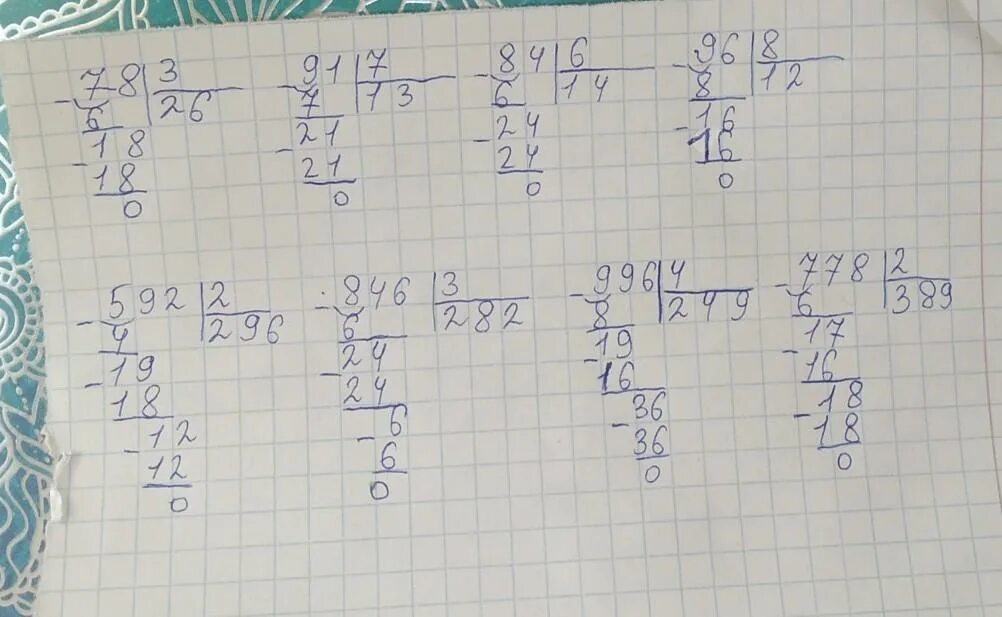 - 78 | 3
6 | 26
- 18
18
0
- 91 | 7
7 | 13
- 21
21
0
- 84 | 6
6 | 14
- 24
24
0
- 96 | 8
8 | 12
- 16
16
0
- 592 | 2
4 | 296
- 19
18
- 12
12
0
- 846 | 3
6 | 282
- 24
24
- 6
6
0
- 996 | 4
8 | 249
- 19
16
- 36
36
0
- 778 | 2
6 | 389
- 17
16
- 18
18
0